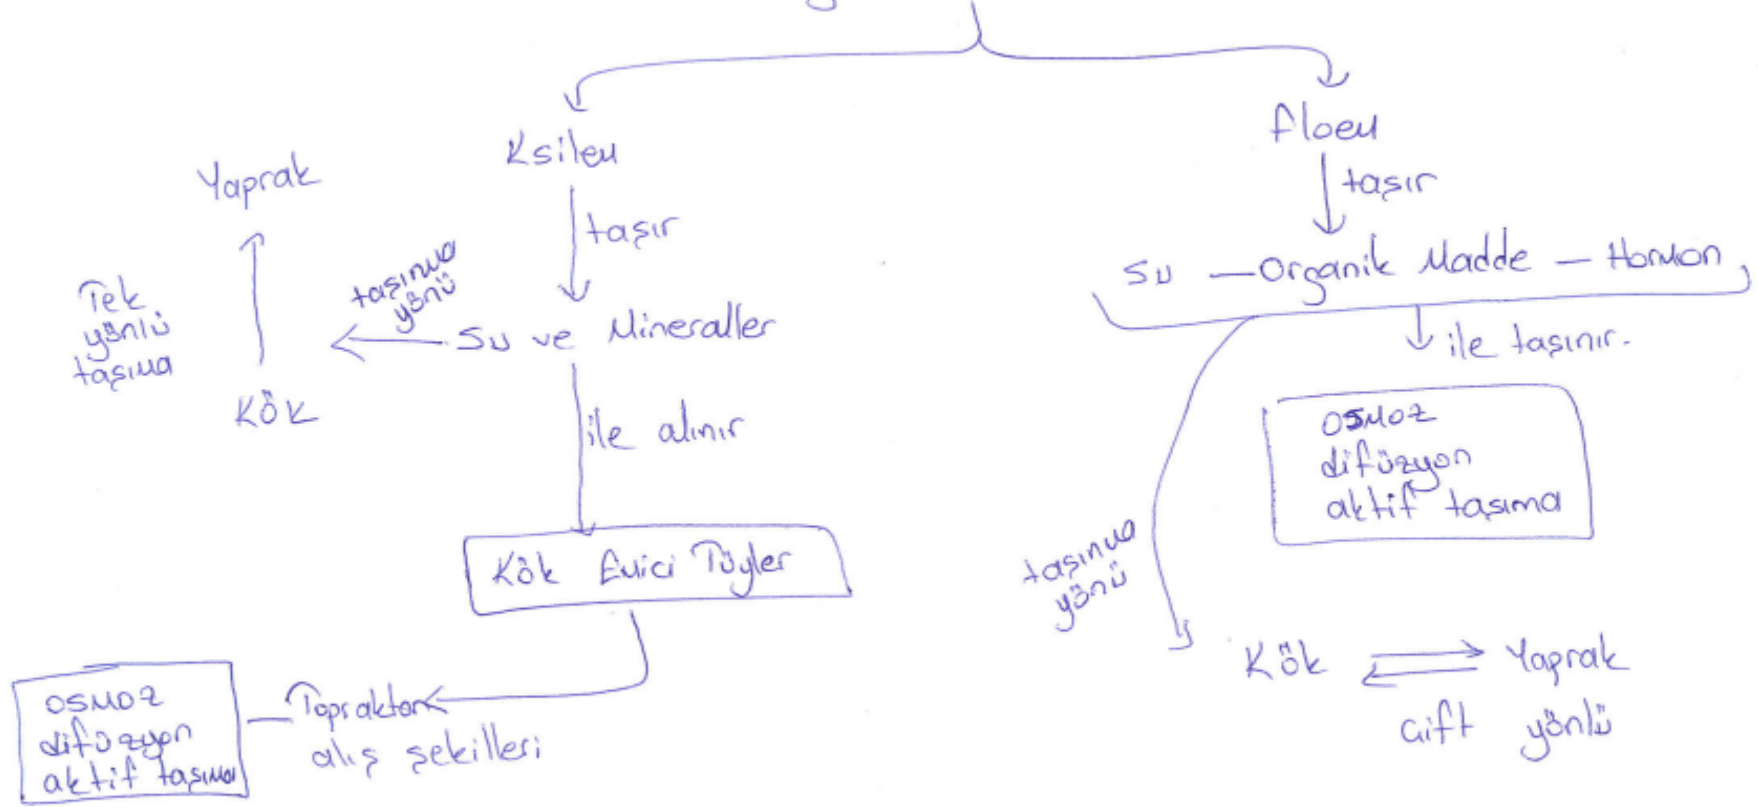 Ksilem
taşır
Su ve Mineraller
taşınma
yönü
Yaprak
Kök
Tek
yönlü
taşıma
ile alınır
Kök Emici Tüyler
Topraktan
alış şekilleri
osmoz
difüzyon
aktif taşıma
floem
taşır
Su — Organik Madde — Hormon
ile taşınır.
osmoz
difüzyon
aktif taşıma
taşınma
yönü
Kök
Yaprak
Çift yönlü